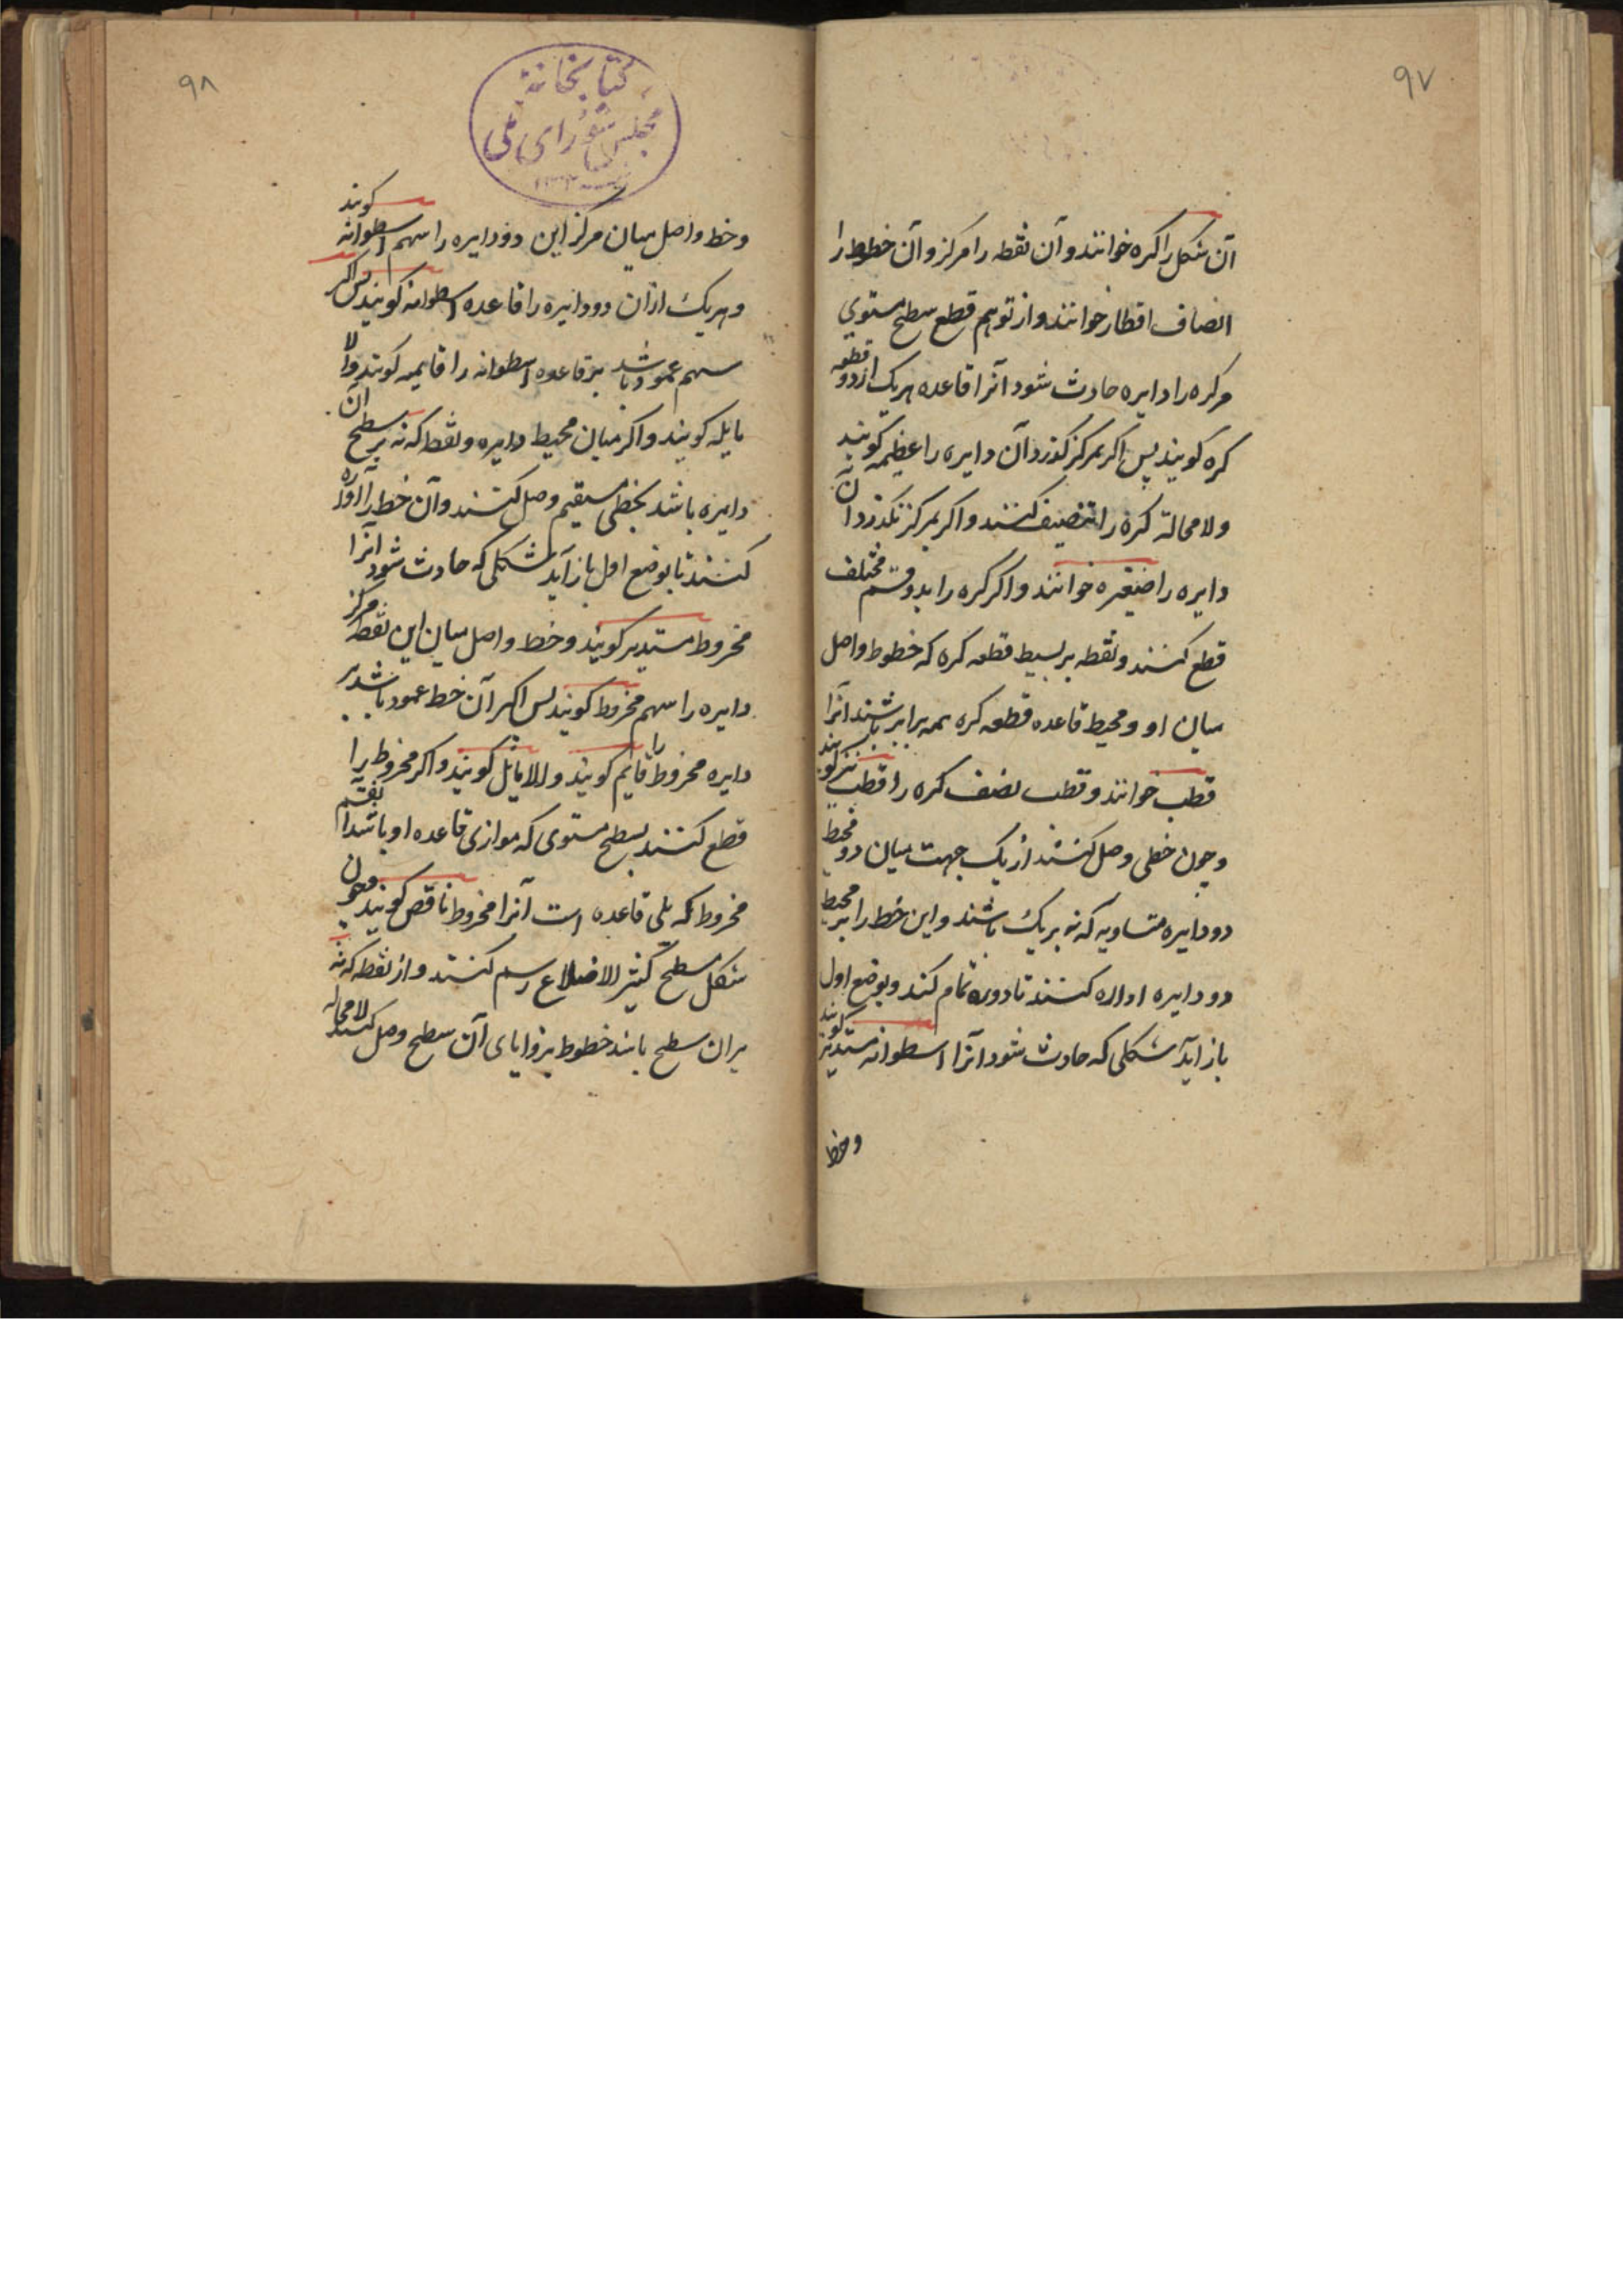 ۹۷
آن شکل را کره خوانند و آن نقطه را مرکز و آن خطوط را
انصاف اقطار خوانند و از توهم قطع سطح مستوی
مر کره را دایره حادث شود آنرا قاعده هر یک از دو قطعه
کره کویند پس اکر بمرکز کذرد آن دایره را عظیمه کویند
و لا محالة کره را تنصیف کنند و اکر بمرکز نکذرد آن
دایره را صغیره خوانند و اکر کره را بدو قسم مختلف
قطع کنند و نقطه بر بسیط قطعه کره که خطوط واصل
میان او و محیط قاعده قطعه کره همه برابر باشند آنرا
قطب خوانند و قطب نصف کره را قطب نیز کویند
و چون خطی وصل کنند از یک جهت میان دو محیط
دو دایره متساویه که نه بر یک باشند و این خط را بر محیط
دو دایره اداره کنند تا دوره تمام کند و بوضع اول
باز آید شکلی که حادث شود آنرا اسطوانه مستدیر کویند
وخط
۹۸
کتابخانهٔ
مجلس شورای ملی
و خط واصل میان مرکز این دو دایره را سهم اسطوانه کویند
و هر یک از آن دو دایره را قاعده اسطوانه کویند پس اکر
سهم عمود باشد بر قاعده اسطوانه را قایمه کویند والا
مایله کویند و اکر میان محیط دایره و نقطه که نه بر سطح آن
دایره باشد بخطی مستقیم وصل کنند و آن خط را اداره
کنند تا بوضع اول باز آید شکلی که حادث شود آنرا
مخروط مستدیر کویند و خط واصل میان این نقطه مرکز
دایره را سهم مخروط کویند پس اکر آن خط عمود باشد بر
دایره مخروط را قایم کویند و الا مایل کویند و اکر مخروط را
قطع کنند بسطح مستوی که موازی قاعده او باشد آن قسم
مخروط که یلی قاعده است آنرا مخروط ناقص کویند و چون
شکل مسطح کثیر الاضلاع رسم کنند و از نقطه که نه
بر آن سطح باشد خطوط بزوایای آن سطح وصل کنند لا محاله